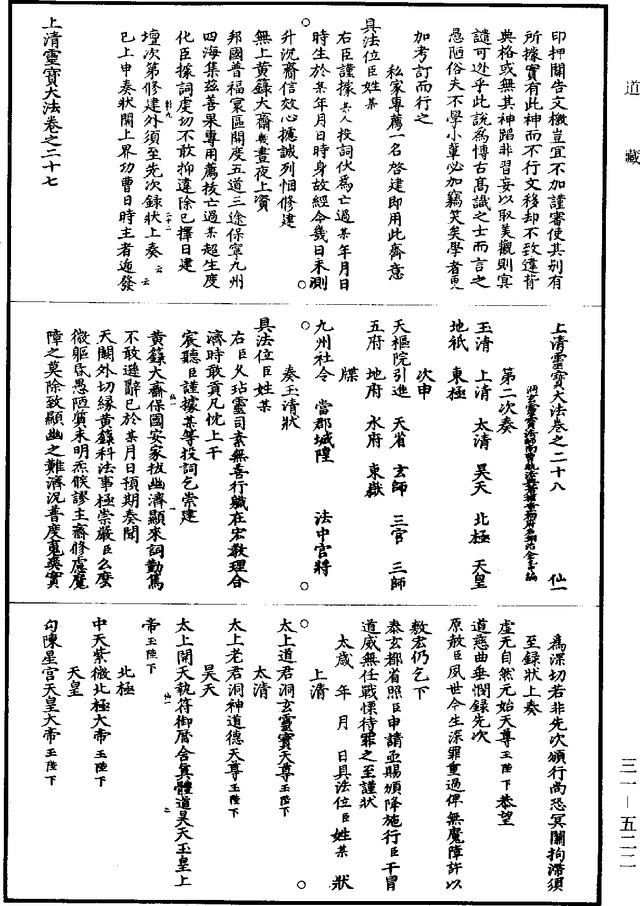 道藏
印押關告文檄豈宜不加謹審使其別有
所據實有此神而不行文移却不致違背
典格或無其神蹈非習妄以取美觀則冥
譴可逃乎此說為博古高識之士而言之
愚陋俗夫不學小輩必加竊笑矣學者更
加考訂而行之
私家專薦一名啓建即用此齋意
具法位臣姓某
右臣謹據某人投詞伏為亡過某年月日
時生於某年月日時身故經今幾日未測
升沉齋信效心攄誠列悃修建
無上黃籙大齋幾晝夜上資
邦國普福寰區開度五道三途保寧九州
四海集茲善果專用薦拔亡過某超生度
化臣據詞虔切不敢抑違除已擇日建
壇次第修建外須至先次錄狀上奏云云
已上申奏狀關上界功曹日時主者遞發
上清靈寶大法卷之二十七
上清靈寶大法卷之二十八 仙一
第二次奏
玉清 上清 太清 昊天 北極 天皇
地祇 東極
次申
天樞院引進 天省 玄師 三官 三師
五府 地府 水府 東嶽
牒
九州社令 當郡城隍 法中官將
奏玉清狀
具法位臣姓某
右臣久玷靈司素無善行職在宏教理合
濟時敢貢凡忱上干
宸聽臣謹據某等投詞乞崇建
黃籙大齋保國安家拔幽濟顯來詞勤篤
不敢遜辭已於某月日預期奏聞
天闕外切緣黃籙科法事極崇嚴臣么麼
微軀氏愚陋質未明炁候謬主齋修慮魔
障之莫除致顯幽之難濟沉普度冤爽實
為深切若非先次頒行尚恐冥關拘滯須
至錄狀上奏
虛元自然元始天尊玉陛下恭望
道慈曲垂憫錄先次
原赦臣夙世今生深罪重過俾無魔障許以
敷宏仍乞下
泰玄都省照臣申請亟賜頒降施行臣干冒
道威無任戰慄待罪之至謹狀
太歲 年 月 日具法位臣姓某 狀
上清
太上道君洞玄靈寶天尊玉陛下
太清
太上老君洞神道德天尊玉陛下
昊天
太上開天執符御曆含真體道昊天玉皇上
帝玉陛下
北極
中天紫微北極大帝玉陛下
天皇
勾陳星宮天皇大帝玉陛下
三一—五二二